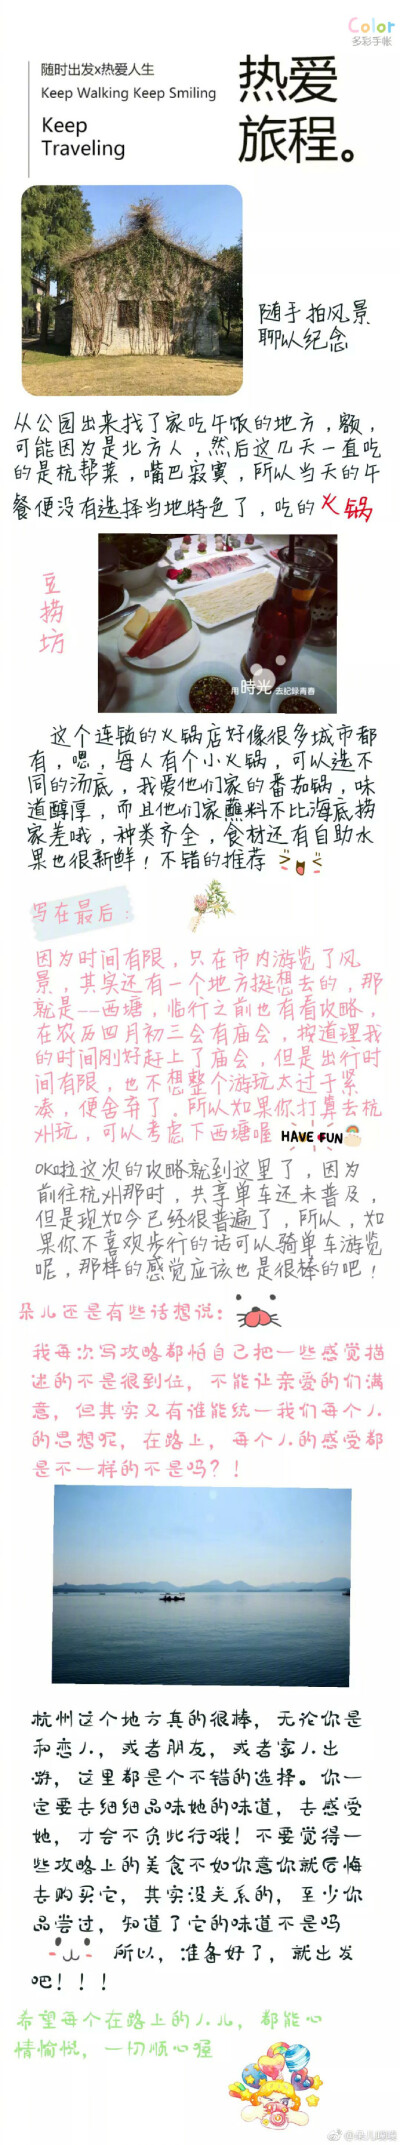 Color
多彩手帐
随时出发x热爱人生
Keep Walking Keep Smiling
Keep
Traveling
热爱
旅程。
随手拍风景
聊以纪念
从公园出来找了家吃午饭的地方，额，
可能因为是北方人，然后这几天一直吃
的是杭帮菜，嘴巴寂寞，所以当天的午
餐便没有选择当地特色了，吃的火锅
豆
捞
坊
用時光去紀録青春
这个连锁的火锅店好像很多城市都
有，嗯，每人有个小火锅，可以选不
同的汤底，我爱他们家的番茄锅，味
道醇厚，而且他们家蘸料不比海底捞
家差哦，种类齐全，食材还有自助水
果也很新鲜！不错的推荐
写在最后：
因为时间有限，只在市内游览了风
景，其实还有一个地方挺想去的，那
就是——西塘，临行之前也有看攻略，
在农历四月初三会有庙会，按道理我
的时间刚好赶上了庙会，但是出行时
间有限，也不想整个游玩太过于紧
凑，便舍弃了。所以如果你打算去杭
州玩，可以考虑下西塘喔 HAVE FUN
OK啦这次的攻略就到这里了，因为
前往杭州那时，共享单车还未普及，
但是现如今已经很普遍了，所以，如
果你不喜欢步行的话可以骑单车游览
呢，那样的感觉应该也是很棒的吧！
朵儿还是有些话想说：
我每次写攻略都怕自己把一些感觉描
述的不是很到位，不能让亲爱的们满
意，但其实又有谁能统一我们每个人
的思想呢，在路上，每个人的感受都
是不一样的不是吗？！
杭州这个地方真的很棒，无论你是
和恋人，或者朋友，或者家人出
游，这里都是个不错的选择。你一
定要去细细品味她的味道，去感受
她，才会不负此行哦！不要觉得一
些攻略上的美食不如你意你就后悔
去购买它，其实没关系的，至少你
品尝过，知道了它的味道不是吗
所以，准备好了，就出发
吧！！！
希望每个在路上的人儿，都能心
情愉悦，一切顺心喔